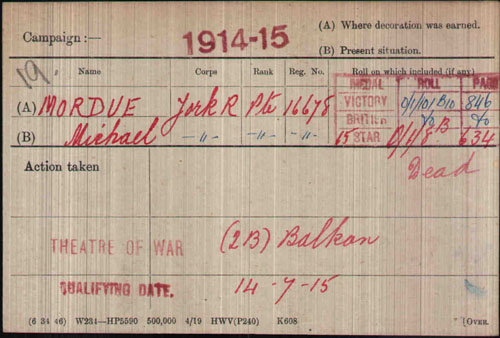 Campaign :— 1914-15
(A) Where decoration was earned.
(B) Present situation.
19 Name Corps Rank Reg. No. Roll on which included (if any)
MEDAL ROLL PAGE
(A) MORDUE York R Pte 16678 VICTORY O/1/101B10 846
(B) Michael -"- -"- -"- BRITISH do do
15 STAR O/1/8B 634
Dead
Action taken
THEATRE OF WAR (2B) Balkan
QUALIFYING DATE. 14-7-15
(6 34 46) W234—HP5590 500,000 4/19 HWV(P240) K608 [OVER.